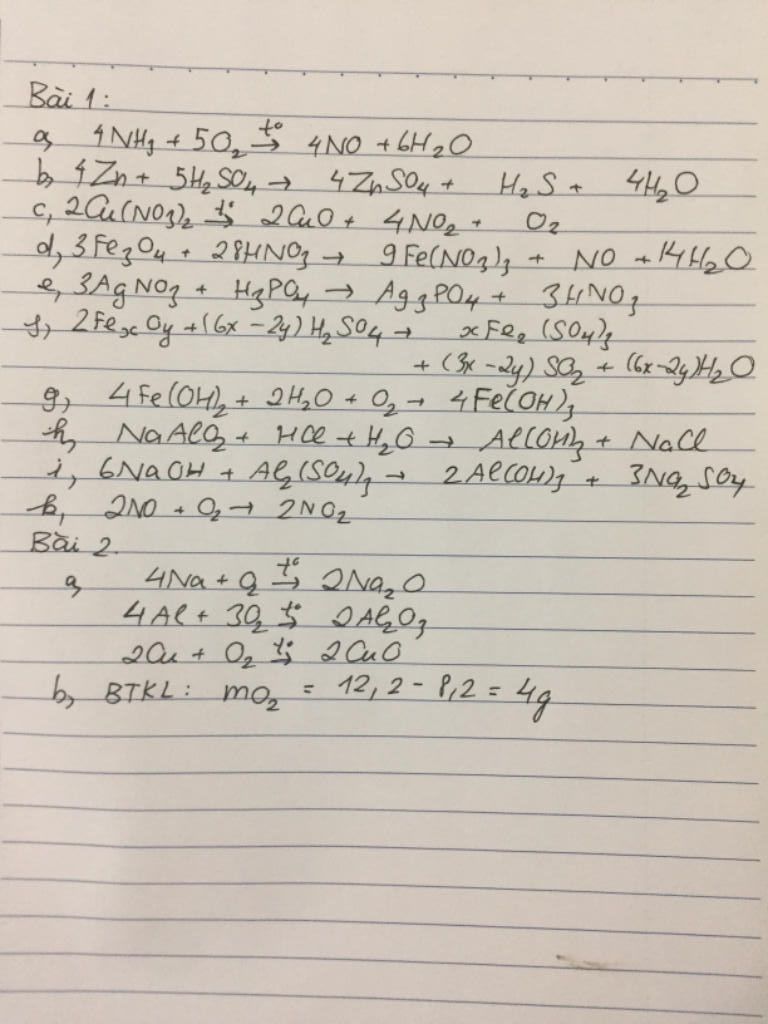 Bài 1:
a, 4NH₃ + 5O₂ →(t°) 4NO + 6H₂O
b, 4Zn + 5H₂SO₄ → 4ZnSO₄ + H₂S + 4H₂O
c, 2Cu(NO₃)₂ →(t°) 2CuO + 4NO₂ + O₂
d, 3Fe₃O₄ + 28HNO₃ → 9Fe(NO₃)₃ + NO + 14H₂O
e, 3AgNO₃ + H₃PO₄ → Ag₃PO₄ + 3HNO₃
f, 2FeₓOy + (6x-2y)H₂SO₄ → xFe₂(SO₄)₃
+ (3x-2y)SO₂ + (6x-2y)H₂O
g, 4Fe(OH)₂ + 2H₂O + O₂ → 4Fe(OH)₃
h, NaAlO₂ + HCl + H₂O → Al(OH)₃ + NaCl
i, 6NaOH + Al₂(SO₄)₃ → 2Al(OH)₃ + 3Na₂SO₄
k, 2NO + O₂ → 2NO₂
Bài 2.
a, 4Na + O₂ →(t°) 2Na₂O
4Al + 3O₂ →(t°) 2Al₂O₃
2Cu + O₂ →(t°) 2CuO
b, BTKL: mO₂ = 12,2 - 8,2 = 4g